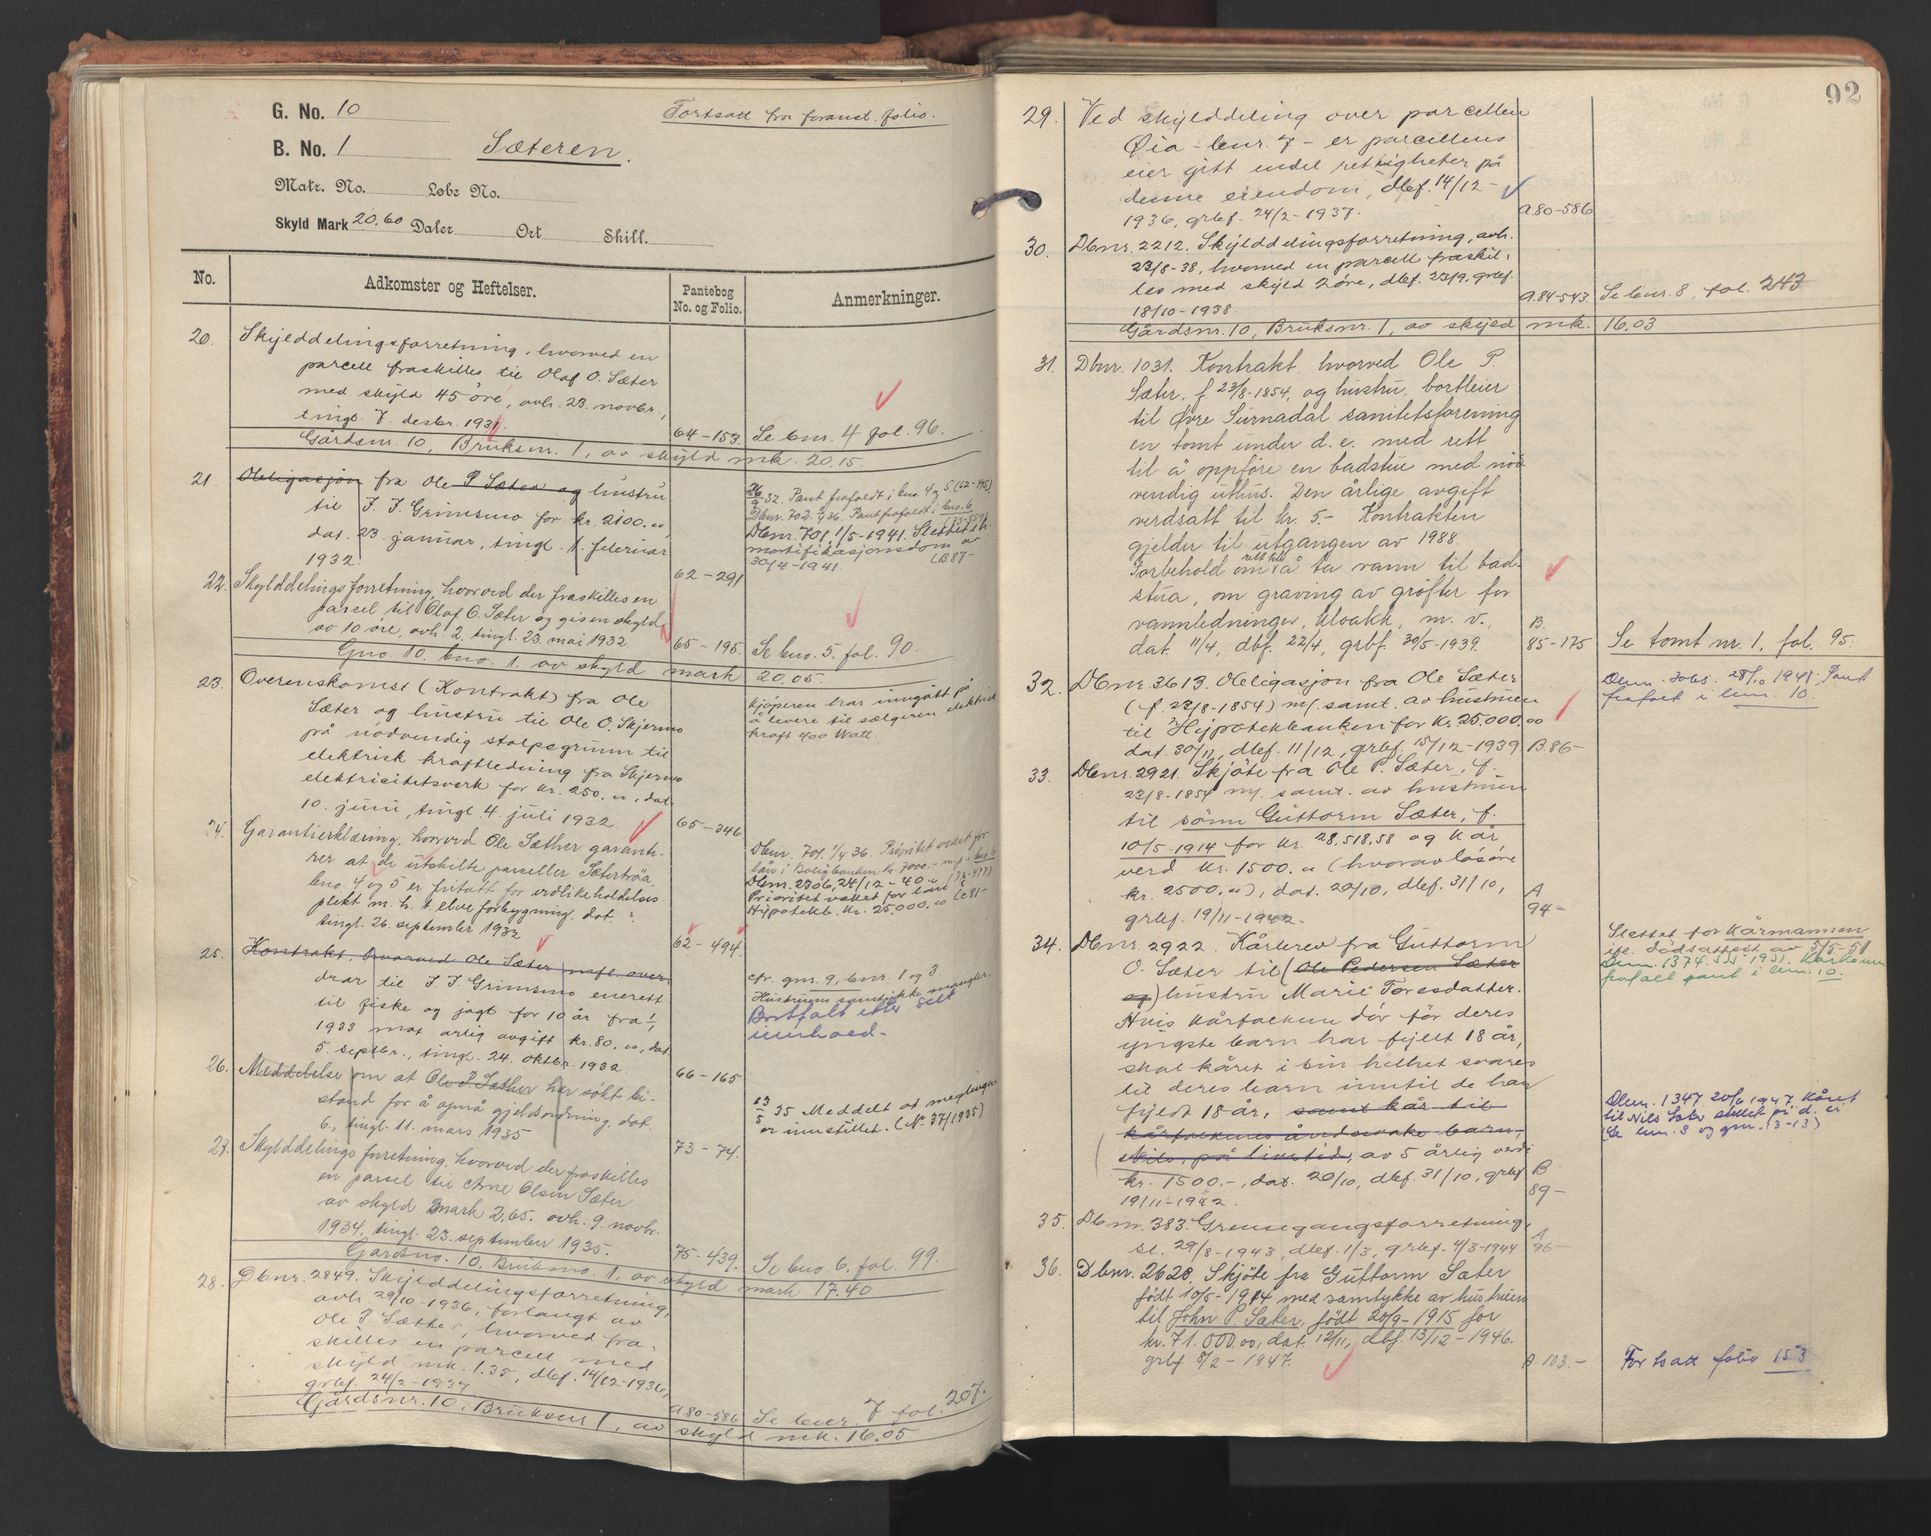 G. No. 10
Fortsatt fra foranst. folio.
B. No. 1
Sæteren.
Matr. No. Løbe No.
Skyld Mark 20.60 Daler Ort Skill.
No.
Adkomster og Heftelser.
Pantebog
No. og Folio.
Anmerkninger.
20. Skylddelingsforretning, hvorved en
parcell fraskilles til Olaf O. Sæter
med skyld 45 øre, avh. 23. novbr.,
tingl. 7. desbr. 1931.
64-153. Se bnr. 4 fol. 96.
Gårdsnr. 10, Bruksnr. 1, av skyld mk. 20.15.
21. Obligasjon fra Ole P Sæter og hustru
til J. J. Grimsmo for kr. 2100.00,
dat. 23. januar, tingl. 1. februar
1932.
62-291
32. Pant frafaldt i bnr. 4 og 5 (62-492)
Dbnr. 702. 36. Pant frafaldt i bnr. 6
Dbnr. 701, 1/5-1941. Slettet ifl.
mortifikasjonsdom av
30/4-1941. (B.87-
22. Skylddelingsforretning, hvorved der fraskilles en
parsel til Olaf O. Sæter og gis en skyld
av 10 øre, avh. 2, tingl. 23. mai 1932
65-195. Se bno. 5. fol. 90.
Gno. 10. bno. 1. av skyld mark 20.05.
23. Overenskomst (Kontrakt) fra Ole
Sæter og hustru til Ole O. Skjermo
på nødvendig stolpegrunn til
elektrisk kraftledning fra Skjermo
elektricitetsverk for kr. 250.00, dat.
10. juni, tingl. 4. juli 1932
65-346
kjøperen har inngått på
å levere til sælgeren elektrisk
kraft 400 Watt.
24. Garantierklæring, hvorved Ole Sæther garante-
rer at de utskilte parceller Sætertrøa
bno. 4 og 5 er fritatt for vedlikeholdelses-
plikt m. h. t. elveforbygning, dat. ?
tingl. 26. september 1932
62-494
Dbnr. 701. 36. Prioritet veket for
lån i Boligbanken kr. 7000.- m.p. i bno. 6
Dbnr. 2306, 24/12-40. (73-477)
Prioritet veket for lån i
Hypotekb. kr. 25.000.00 (B.81-
25. Kontrakt, hvorved Ole Sæter mfl. over-
drar til J. J. Grimsmo enerett
til fiske og jagt for 10 år fra 1/1
1933 mot årlig avgift kr. 80.00, dat.
5. septbr., tingl. 24. oktbr. 1932.
66-165
cfr. gnr. 9, bnr. 1 og 3.
Hustruens samtykke mangler.
Bortfalt etter sitt
innhold.
26. Meddelelse om at Ole P. Sæther har søkt bi-
stand for å opnå gjeldsordning, dat.
6., tingl. 11. mars 1935
73-74.
13/5 35 Meddelt at meglingen
er innstillet. (N° 37/1935)
27. Skylddelingsforretning, hvorved der fraskilles
en parsel til Arne Olsen Sæter
av skyld mark 2,65. avh. 9. novbr.
1934, tingl. 23. september 1935.
75-439. Se bno. 6. fol. 99.
Gårdsno. 10, Bruksno. 1, av skyld mark 17.40
28. Dbnr. 2849. Skylddelingsforretning,
avh. 29/10-1936, forlangt av
Ole P. Sæther, hvorved fra-
skilles en parcell med
skyld mk. 1.35, dbf. 14/12-1936,
grbf. 24/2-1937
A.80-586 Se bnr. 7 fol. 207.
Gårdsnr. 10, Bruksnr. 1, av skyld mk. 16.05
92
29. Ved skylddeling over parcellen
Øia - bnr. 7 - er parcellens
eier gitt endel rettigheter på
denne eiendom, dbf. 14/12-
1936, grbf. 24/2-1937.
A.80-586
30. Dbnr. 2212. Skylddelingsforretning, avh.
23/8-38, hvorved en parcell fraskil-
les med skyld 2 øre, dbf. 23/9, grbf.
18/10-1938.
A.84-543 Se bnr. 8, fol. 243
Gårdsnr. 10, Bruksnr. 1, av skyld mk. 16.03
31. Dbnr. 1031. Kontrakt, hvorved Ole P.
Sæter, f. 23/8-1854, og hustru, bortleier
til Øvre Surnadal sanitetsforening
en tomt under d. e. med rett
til å oppføre en badstu med nød-
vendig uthus. Den årlige avgift
verdsatt til kr. 5.- Kontrakten
gjelder til utgangen av 1988.
Forbehold om rett til å ta vann til bad-
stua, om graving av grøfter for
vannledninger, kloakk, m. v.,
dat. 11/4, dbf. 22/4, grbf. 30/5-1939.
B.
85-175 Se tomt nr. 1, fol. 95.
32. Dbnr. 3613. Obligasjon fra Ole Sæter
(f. 23/8-1854) m/ samt. av hustruen
til Hypotekbanken for kr. 25.000.00
dat. 30/11, dbf. 11/12, grbf. 15/12-1939
B.86-
Dbnr. 3065. 28/10 1941. Pant
frafalt i bnr. 10.
33. Dbnr. 2921. Skjøte fra Ole P. Sæter, f.
23/8-1854 m/ samt. av hustruen
til sønn Guttorm Sæter, f.
10/5-1914 for kr. 28,518,58 og kår
verd kr. 1500.00 (hvorav løsøre
kr. 2500.00), dat. 20/10, dbf. 31/10,
grbf. 19/11-1942.
A
94-
34. Dbnr. 2922. Kårbrev fra Guttorm
O. Sæter til (Ole Pedersen Sæter
og) hustru Marie Toresdatter.
Hvis kårfolkene dør før deres
yngste barn har fyllt 18 år,
skal kåret i sin helhet svares
til deres barn inntil de har
fyldt 18 år, samt kår til
kårfolkenes åndssvake barn,
Nils, på livstid, av 5 årlig verdi
kr. 1500.-, dat. 20/10, dbf. 31/10, grbf
19/11-1942.
B
89-
Slettet for kårmannen
ifl. dødsattest av 5/5-51
Dbnr. 1374. 1951. Kårkonen
frafalt pant i bnr. 10.
Dbnr. 1347. 20/6 1947. Kåret
til Nils Sæter slettet på d. ei
(Se bnr. 3 og gnr. 13-13)
35. Dbnr. 383. Grensegangsforretning,
sl. 29/8-1943, dbf. 1/3, grbf. 4/3-1944
A
96-
36. Dbnr. 2628. Skjøte fra Guttorm Sæter
født 10/5-1914 med samtykke av hustruen
til John P. Sæter, født 20/9-1915 for
kr. 71.000.00, dat. 12/11, dbf. 13/12-1946.
grbf. 8/2-1947.
A. 103.-
Fortsatt folio 153